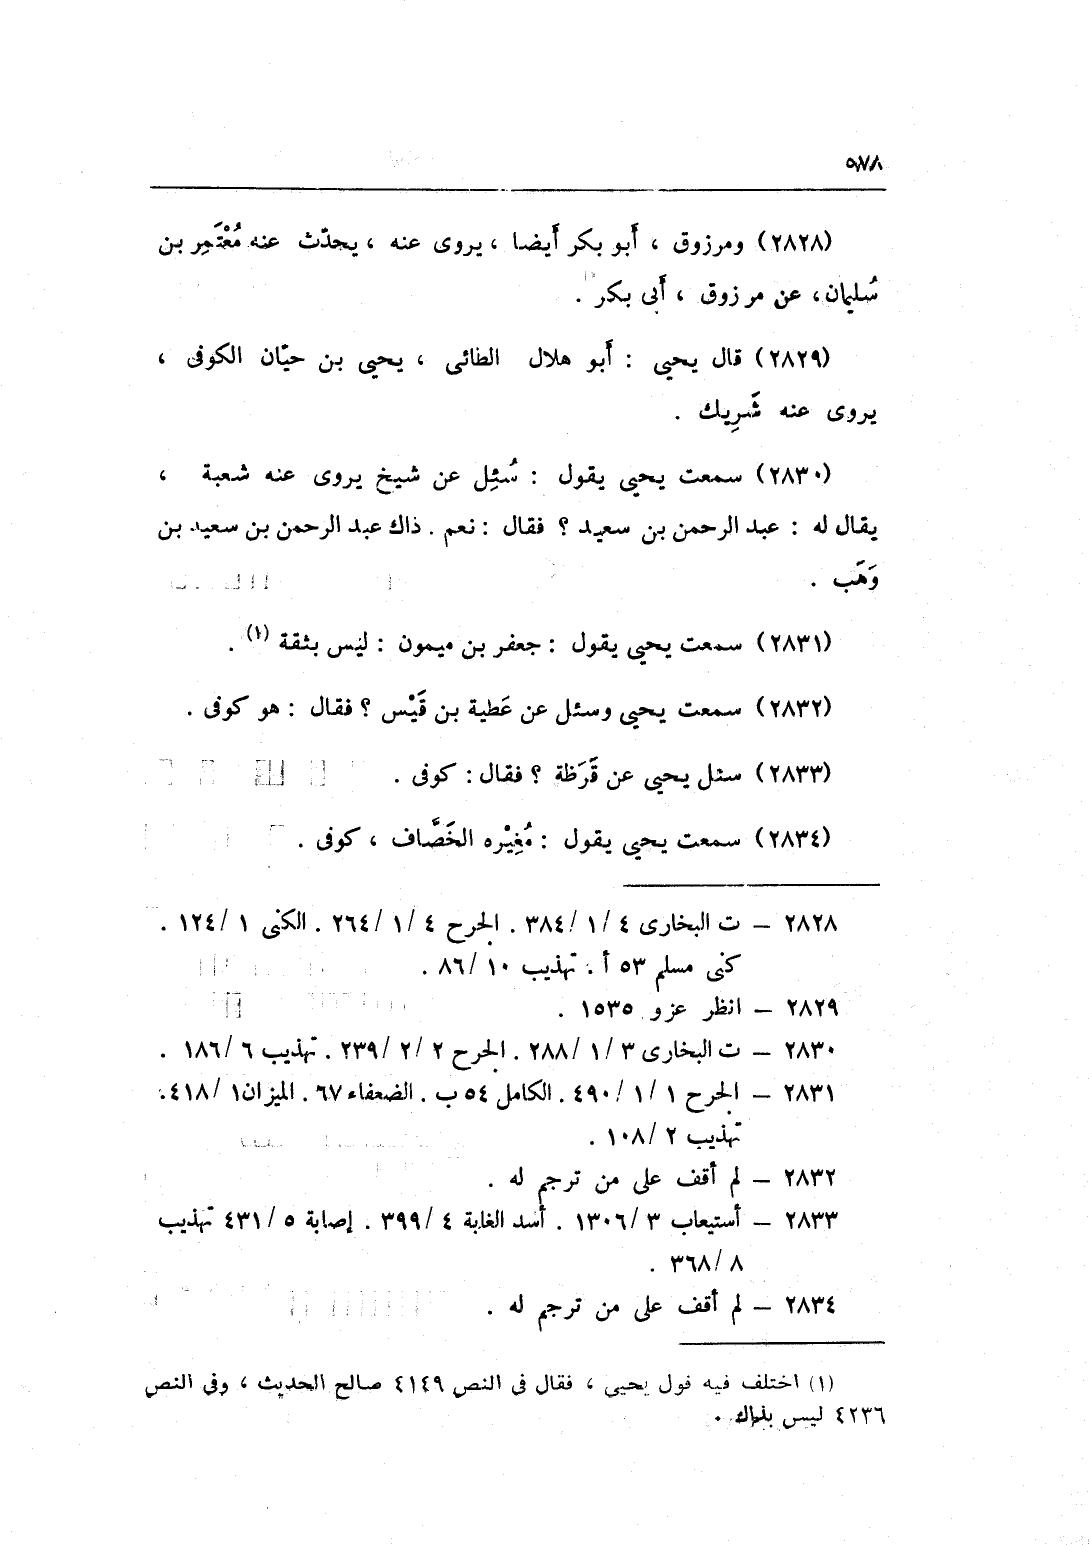 ٥٧٨
(٢٨٢٨) ومرزوق ، أَبو بكر أَيضا ، يروى عنه ، يحدّث عنه مُعْتَمِر بن
سُليمان، عن مرزوق ، أَبى بكر .
(٢٨٢٩) قال يحيى : أَبو هلال الطائى ، يحيى بن حيّان الكوفى ،
يروى عنه شَرِيك .
(٢٨٣٠) سمعت يحيى يقول : سُئِل عن شيخ يروى عنه شعبة ،
يقال له : عبد الرحمن بن سعيد ؟ فقال : نعم . ذاك عبد الرحمن بن سعيد بن
وَهَب .
(٢٨٣١) سمعت يحيى يقول : جعفر بن ميمون : ليس بثقة (١) .
(٢٨٣٢) سمعت يحيى وسئل عن عَطية بن قَيْس ؟ فقال : هو كوفى .
(٢٨٣٣) سئل يحيى عن قَرَظة ؟ فقال : كوفى .
(٢٨٣٤) سمعت يحيى يقول : مُغِيْره الخَصَّاف ، كوفى .
٢٨٢٨ – ت البخارى ٤ /١ /٣٨٤ . الجرح ٤ /١ /٢٦٤ . الكنى ١ /١٢٤ .
كنى مسلم ٥٣ أ . تهذيب ١٠ /٨٦ .
٢٨٢٩ – انظر عزو ١٥٣٥ .
٢٨٣٠ – ت البخارى ٣ /١ /٢٨٨ . الجرح ٢ /٢ /٢٣٩ . تهذيب ٦ /١٨٦ .
٢٨٣١ – الجرح ١ /١ /٤٩٠ . الكامل ٥٤ ب . الضعفاء ٦٧ . الميزان ١ /٤١٨ .
تهذيب ٢ /١٠٨ .
٢٨٣٢ – لم أقف على من ترجم له .
٢٨٣٣ – أستيعاب ٣ /١٣٠٦ . أسد الغابة ٤ /٣٩٩ . إصابة ٥ /٤٣١ تهذيب
٨ /٣٦٨ .
٢٨٣٤ – لم أقف على من ترجم له .
(١) اختلف فيه قول يحيى ، فقال فى النص ٤١٤٩ صالح الحديث ، وفى النص
٤٢٣٦ ليس بذاك .